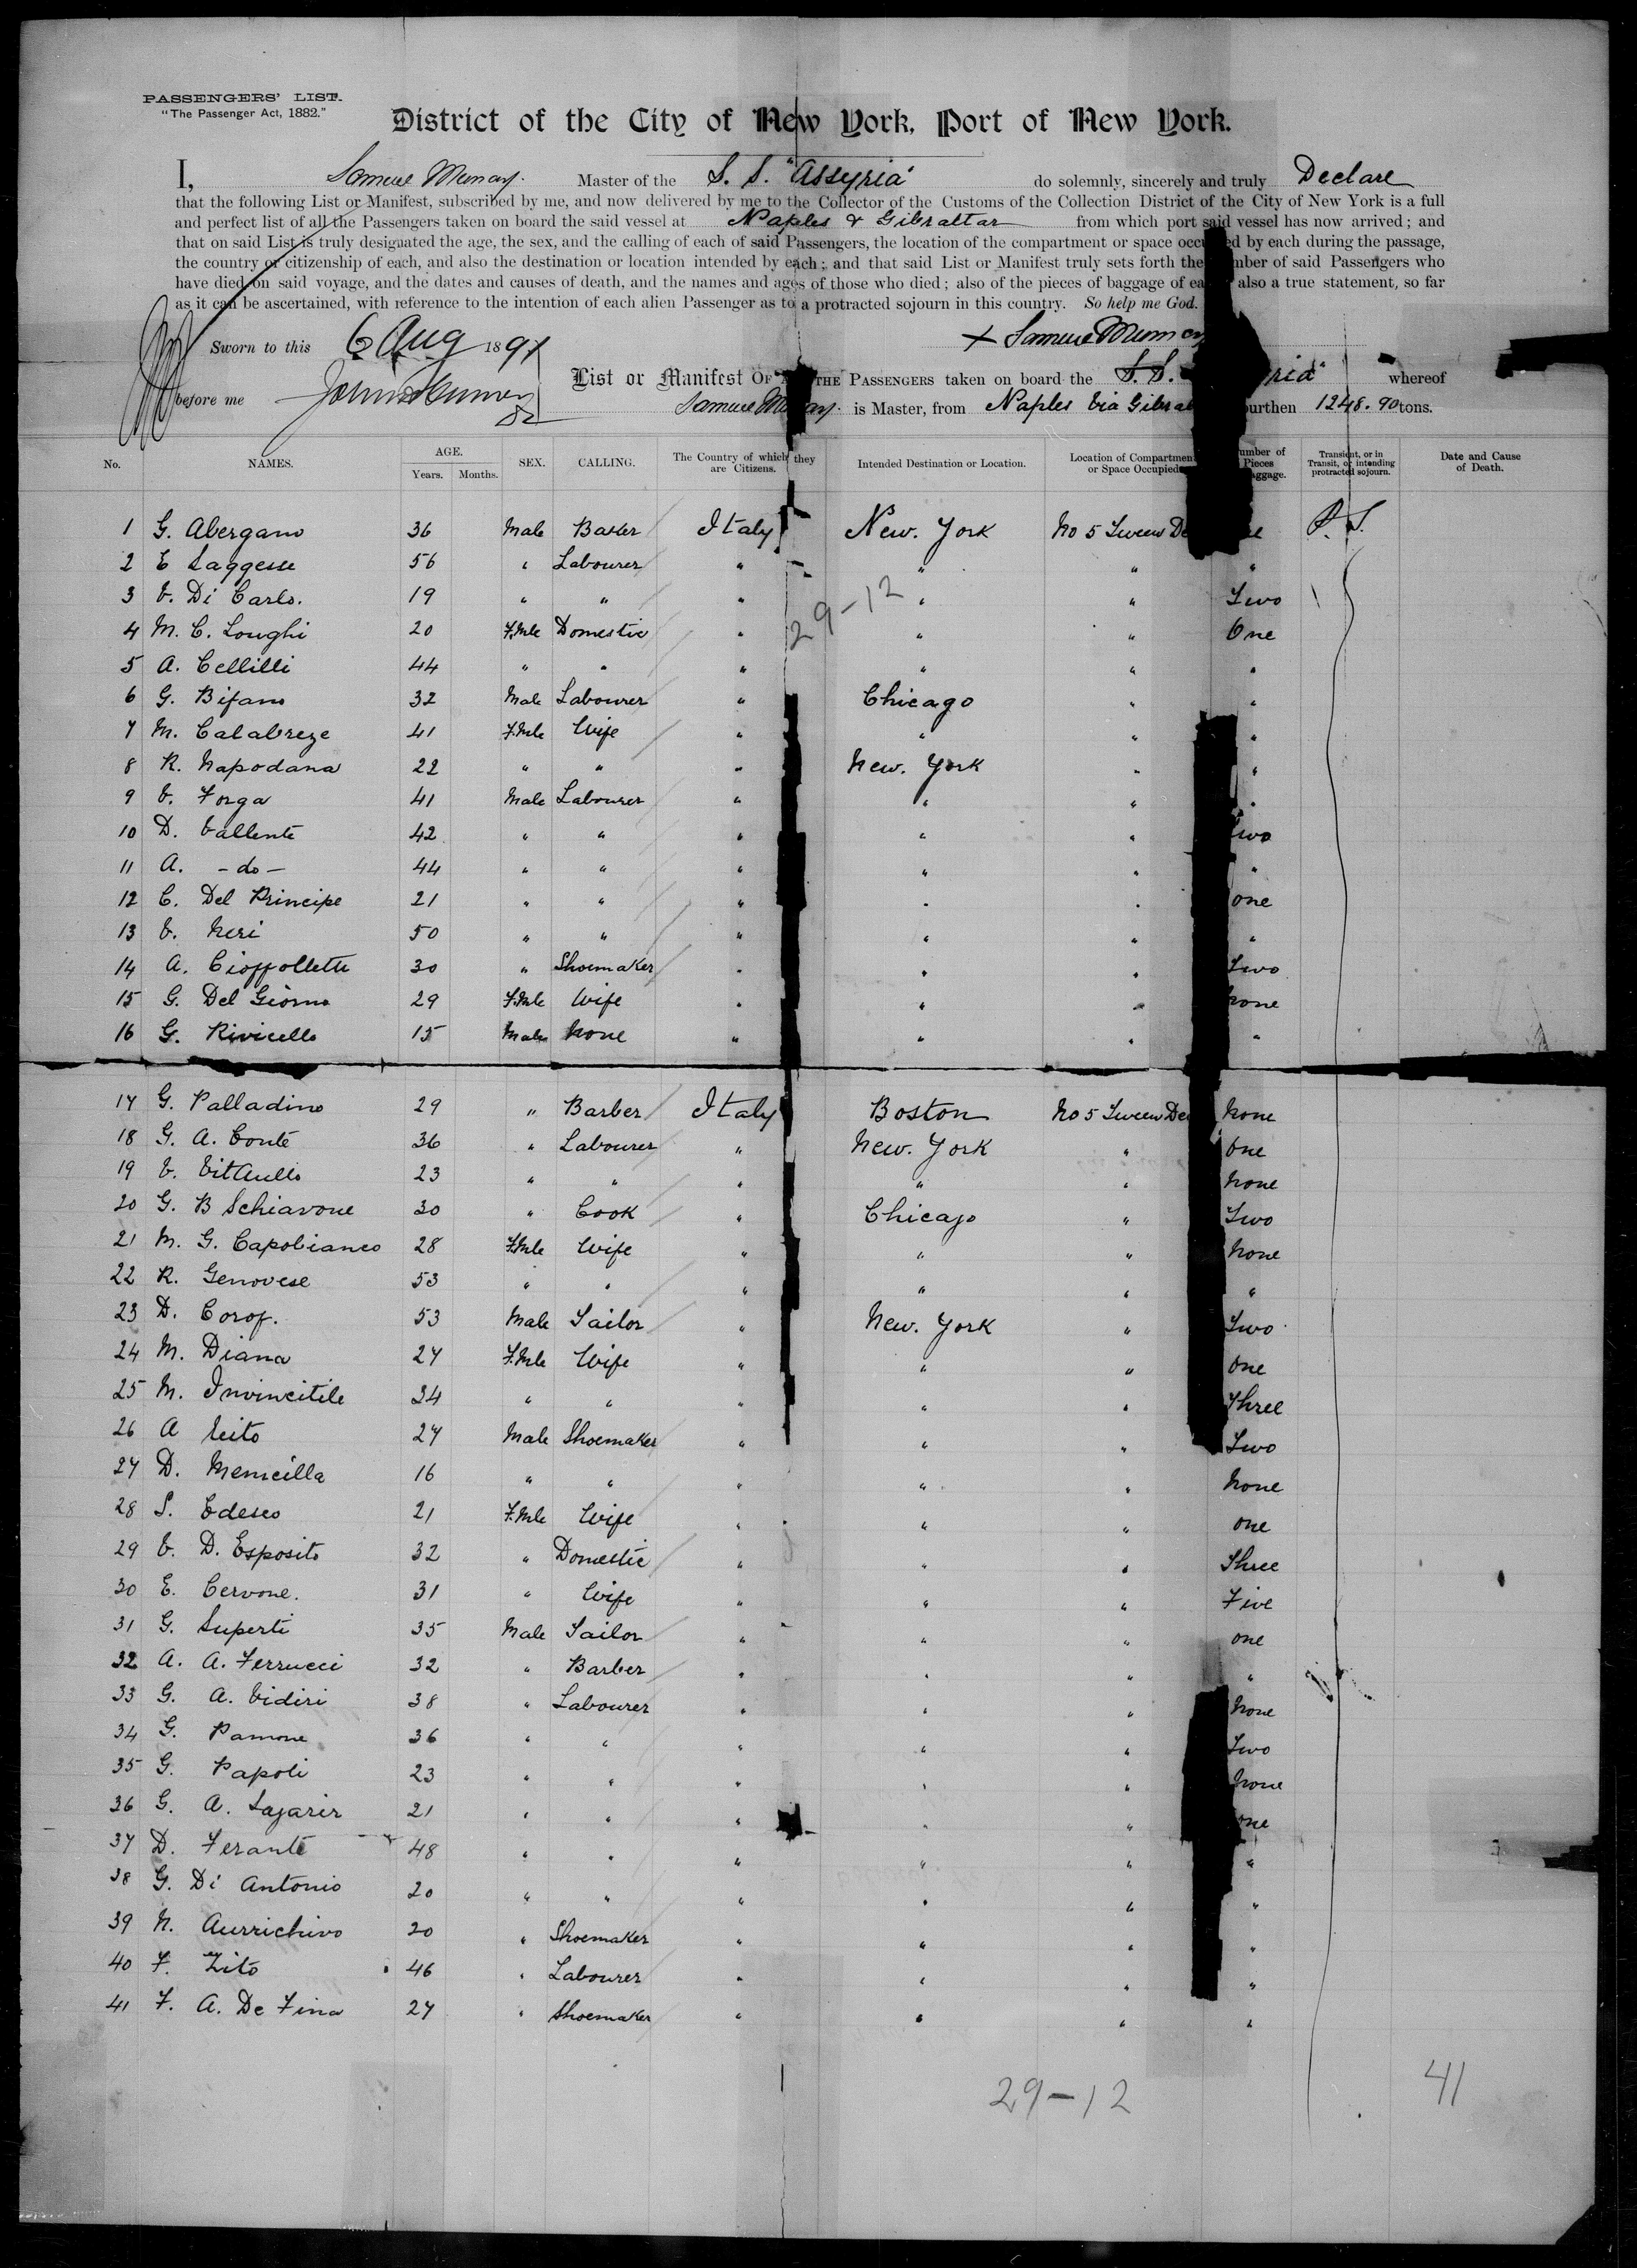 PASSENGERS' LIST.
"The Passenger Act, 1882."
District of the City of New York, Port of New York.
I, Samuel Murray. Master of the S. S. "Assyria" do solemnly, sincerely and truly Declare
that the following List or Manifest, subscribed by me, and now delivered by me to the Collector of the Customs of the Collection District of the City of New York is a full
and perfect list of all the Passengers taken on board the said vessel at Naples & Gibraltar from which port said vessel has now arrived; and
that on said List is truly designated the age, the sex, and the calling of each of said Passengers, the location of the compartment or space occupied by each during the passage,
the country or citizenship of each, and also the destination or location intended by each; and that said List or Manifest truly sets forth the number of said Passengers who
have died on said voyage, and the dates and causes of death, and the names and ages of those who died; also of the pieces of baggage of ea also a true statement, so far
as it can be ascertained, with reference to the intention of each alien Passenger as to a protracted sojourn in this country. So help me God.
Sworn to this 6 Aug 1891 + Samuel Murray
before me
List or Manifest OF THE PASSENGERS taken on board the S. S. ria" whereof
Samuel Murray. is Master, from Naples Via Gibral burthen 1248.90 tons.
No. NAMES. AGE. Years. Months. SEX. CALLING. The Country of which they are Citizens. Intended Destination or Location. Location of Compartment or Space Occupied. Number of Pieces Baggage. Transient, or in Transit, or intending protracted sojourn. Date and Cause of Death.
1 G. Abergano 36 Male Baker Italy New. York No 5 Tween De P. S.
2 E Saggese 56 " Labourer " " " "
3 V. Di Carlo. 19 " " " " " Two
4 M. C. Longhi 20 F.Mle Domestic " " " One
5 A. Cellilli 44 " " " " " "
6 G. Bifano 32 Male Labourer " Chicago " "
7 M. Calabreze 41 F.Mle Wife " " " "
8 R. Napodana 22 " " " New. York " "
9 V. Forga 41 Male Labourer " " " "
10 D. Vallente 42 " " " " " Two
11 A. - do - 44 " " " " " "
12 C. Del Principe 21 " " " " " one
13 V. Neri 50 " " " " " "
14 A. Cioffolletti 30 " Shoemaker " " " Two
15 G. Del Giorno 29 F.Mle Wife " " " none
16 G. Rivicello 15 Male None " " " "
17 G. Palladino 29 " Barber Italy Boston No 5 Tween Dec None
18 G. A. Conte 36 " Labourer " New. York " One
19 V. Vitaullo 23 " " " " " None
20 G. B Schiavone 30 " Cook " Chicago " Two
21 M. G. Capobianco 28 F.Mle Wife " " " None
22 R. Genovese 53 " " " " " "
23 D. Corof. 53 Male Tailor " New. York " Two
24 M. Diana 27 F.Mle Wife " " " one
25 M. Invincitile 24 " " " " " Three
26 A Veito 27 Male Shoemaker " " " Two
27 D. Memcilla 16 " " " " " None
28 S. Edesco 21 F.Mle Wife " " " one
29 V. D. Esposito 32 " Domestic " " " Three
30 E. Cervone. 31 " Wife " " " Five
31 G. Superti 35 Male Tailor " " " one
32 A. A. Ferrucci 32 " Barber " " " "
33 G. A. Vidiri 38 " Labourer " " " None
34 G. Pamone 36 " " " " " Two
35 G. Papoli 23 " " " " " None
36 G. A. Lazarir 21 " " " " " one
37 D. Ferante 48 " " " " " "
38 G. Di Antonio 20 " " " " " "
39 N. Aurrichivo 20 " Shoemaker " " " "
40 F. Zito 46 " Labourer " " " "
41 F. A. De Fina 27 " Shoemaker " " " "
29-12
29-12
41